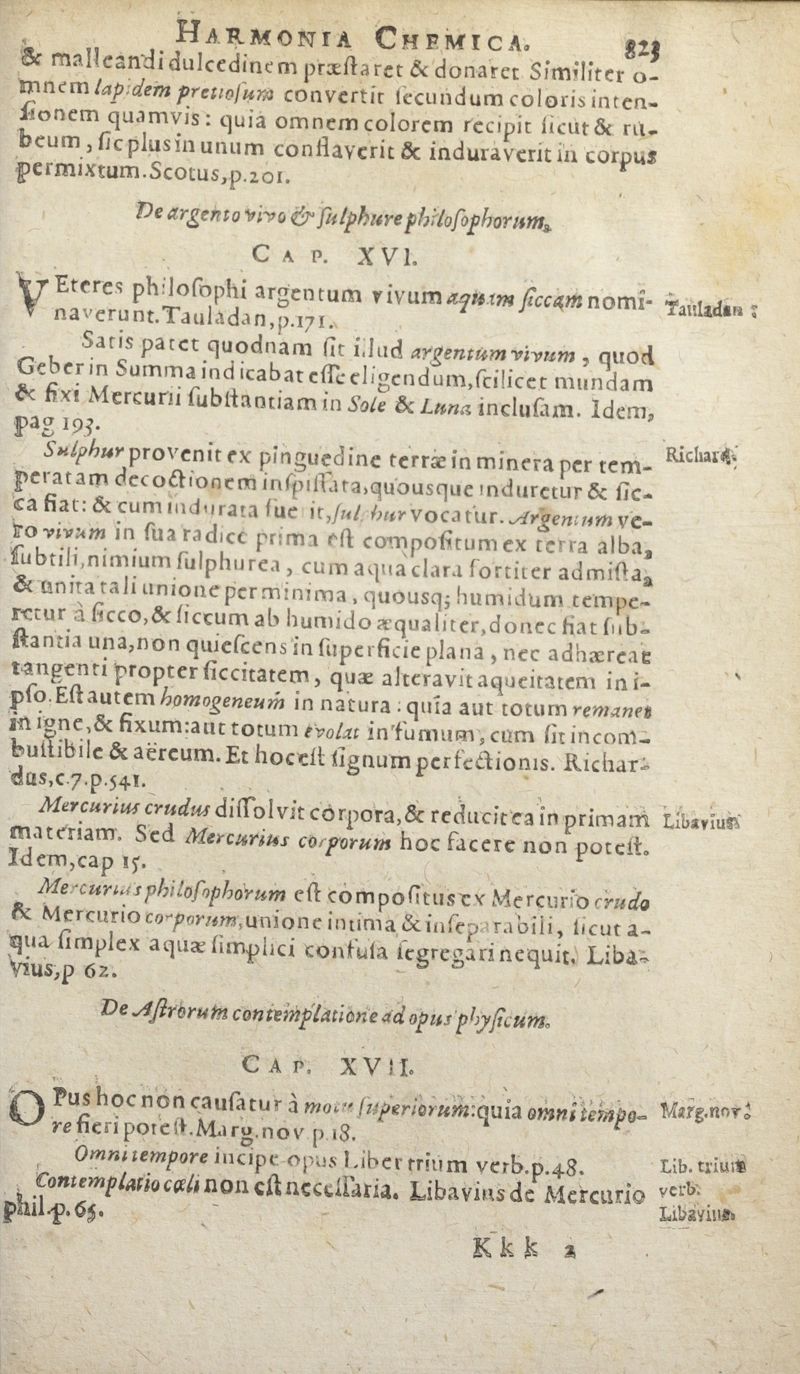 HARMONIA CHEMICA. 823
& malleandi dulcedinem præſtaret & donaret Similiter o-
mnem lapidem pretioſum convertit ſecundum coloris inten-
ſionem quamvis: quia omnem colorem recipit ſicut & ru-
beum, ſic plus in unum conflaverit & induraverit in corpus
permixtum. Scotus, p. 201.
De argento vivo & ſulphure philoſophorum.
CAP. XVI.
VEteres philoſophi argentum vivum aquam ſiccam nomi-
naverunt. Tauladan, p. 171.
Tauladan:
Satis patet quodnam ſit illud argentum vivum, quod
Geber in Summa indicabat eſſe eligendum, ſcilicet mundam
& fixi Mercurii ſubſtantiam in Sole & Luna incluſam. Idem,
pag 193.
Sulphur provenit ex pinguedine terræ in minera per tem-
Richard.
peratam decoctionem inſpiſſata, quousque induretur & ſic-
ca fiat: & cum indurata fue it, ſulphur vocatur. Argentum ve-
ro vivum in ſua radice prima eſt compoſitum ex terra alba,
ſubtili, nimium ſulphurea, cum aqua clara fortiter admiſta,
& unita tali unione per minima, quousq; humidum tempe-
retur à ſicco, & ſiccum ab humido æqualiter, donec fiat ſub-
ſtantia una, non quieſcens in ſuperficie plana, nec adhæreat
tangenti propter ſiccitatem, quæ alteravit aqueitatem in i-
pſo. Eſt autem homogeneum in natura: quia aut totum remanet
in igne, & fixum: aut totum evolat in fumum, cum ſit incom-
buſtibile & aëreum. Et hoc eſt ſignum perfectionis. Richar-
dus, c. 7. p. 541.
Mercurius crudus diſſolvit corpora, & reducit ea in primam
Libavius
materiam. Sed Mercurius corporum hoc facere non poteſt.
Idem, cap 15.
Mercurius philoſophorum eſt compoſitus ex Mercurio crudo
& Mercurio corporum, unione intima & inſeparabili, ſicut a-
qua ſimplex aquæ ſimplici confuſa ſegregari nequit. Liba-
vius, p 62.
De Aſtrorum contemplatione ad opus phyſicum.
CAP. XVII.
OPus hoc non cauſatur à motu ſuperiorum: quia omni tempo-
Marg. nov.
re fieri poteſt. Marg. nov p. 18.
Omni tempore incipe opus Liber trium verb. p. 48.
Lib. trium
verb.
Contemplatio cœli non eſt neceſſaria. Libavius de Mercurio
Libavius.
phil. p. 65.
Kkk 2